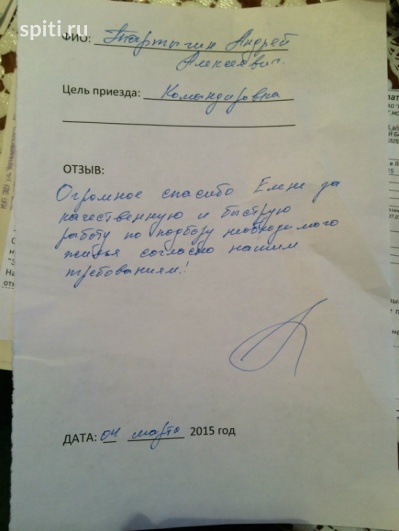 spiti.ru
ФИО: Тартыгин Андрей
Алексеевич.
Цель приезда: Командировка
ОТЗЫВ:
Огромное спасибо Елене за
качественную и быструю
работу по подбору необходимого
жилья согласно нашим
требованиям!
ДАТА: 04 марта 2015 год